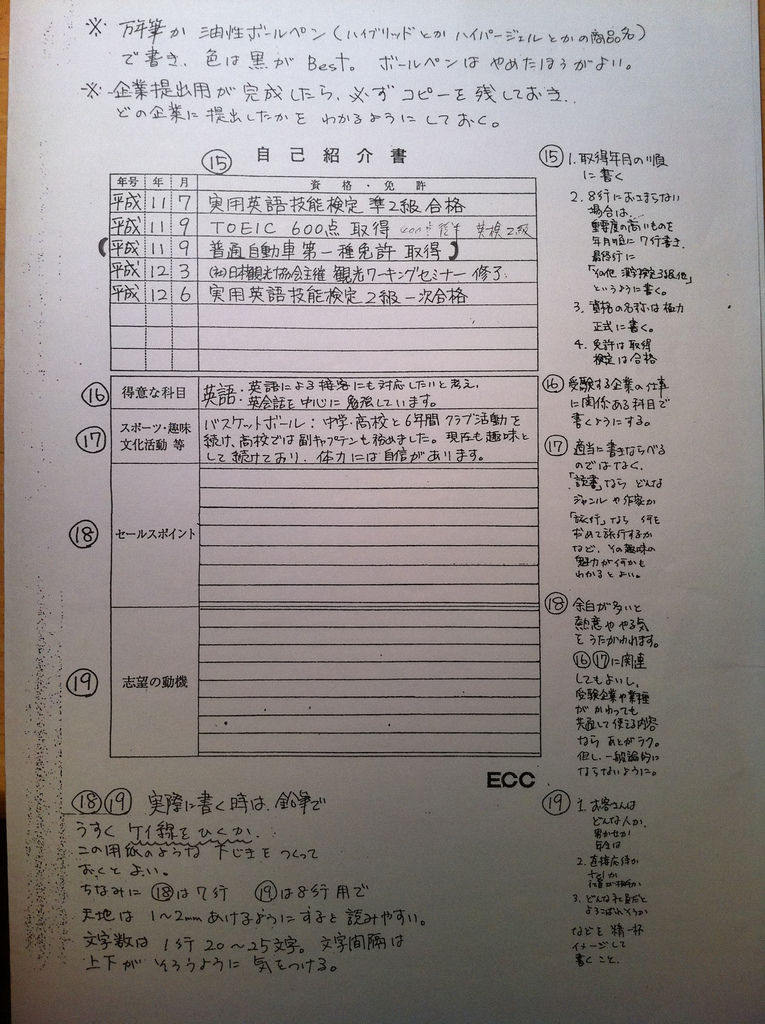 ※ 万年筆か油性ボールペン(ハイブリッドとかハイパージェルとかの商品名)
で書き、色は黒が Best。ボールペンは やめたほうがよい。
※ 企業提出用が完成したら、必ずコピーを残しておき、
どの企業に提出したかを わかるように しておく。
⑮ 自己紹介書
年号 年 月 資格・免許
平成 11 7 実用英語技能検定 準2級 合格
平成 11 9 TOEIC 600点 取得 英検2級
(平成 11 9 普通自動車第一種免許 取得)
平成 12 3 (社)日本観光協会主催 観光ワーキングセミナー 修了
平成 12 6 実用英語技能検定 2級 一次合格
⑯ 得意な科目 英語・英語による接客にも対応したいと考え、
英会話を中心に勉強しています。
⑰ スポーツ・趣味 文化活動 等
バスケットボール:中学・高校と6年間クラブ活動を
続け、高校では副キャプテンも務めました。現在も趣味と
して続けており、体力には自信があります。
⑱ セールスポイント
⑲ 志望の動機
ECC
⑮ 1. 取得年月の順
に書く
2. 8行におさまらない
場合は、
重要度の高いものを
年月順に7行書き、
最終行に
「その他 漢字検定3級他」
というように書く。
3. 資格の名称は極力
正式に書く。
4. 免許は取得
検定は合格
⑯ 受験する企業の仕事
に関係ある科目で
書くようにする。
⑰ 適当に書きならべる
のではなく、
「読書」なら どんな
ジャンルや作家か
「旅行」なら 何を
求めて旅行するか
など、その趣味の
魅力が何かも
わかるとよい。
⑱ 余白が多いと
熱意ややる気
をうたがわれます。
⑯⑰に関連
してもよいし、
受験企業や業種
がかわっても
共通して使える内容
なら あとがラク。
但し、一般論的に
ならないように。
⑱⑲ 実際に書く時は、鉛筆で
うすく ケイ線をひくか、
この用紙のような 下じきをつくって
おくとよい。
ちなみに ⑱は7行 ⑲は8行用で
天地は 1〜2mmあけるようにすると読みやすい。
文字数は 1行20〜25文字。文字間隔は
上下が そろうように 気をつける。
⑲ 1. お客さんは
どんな人か、
男か女か
年令は
2. 直接応待か
telか
3.
などを 精一杯
イメージして
書くこと。